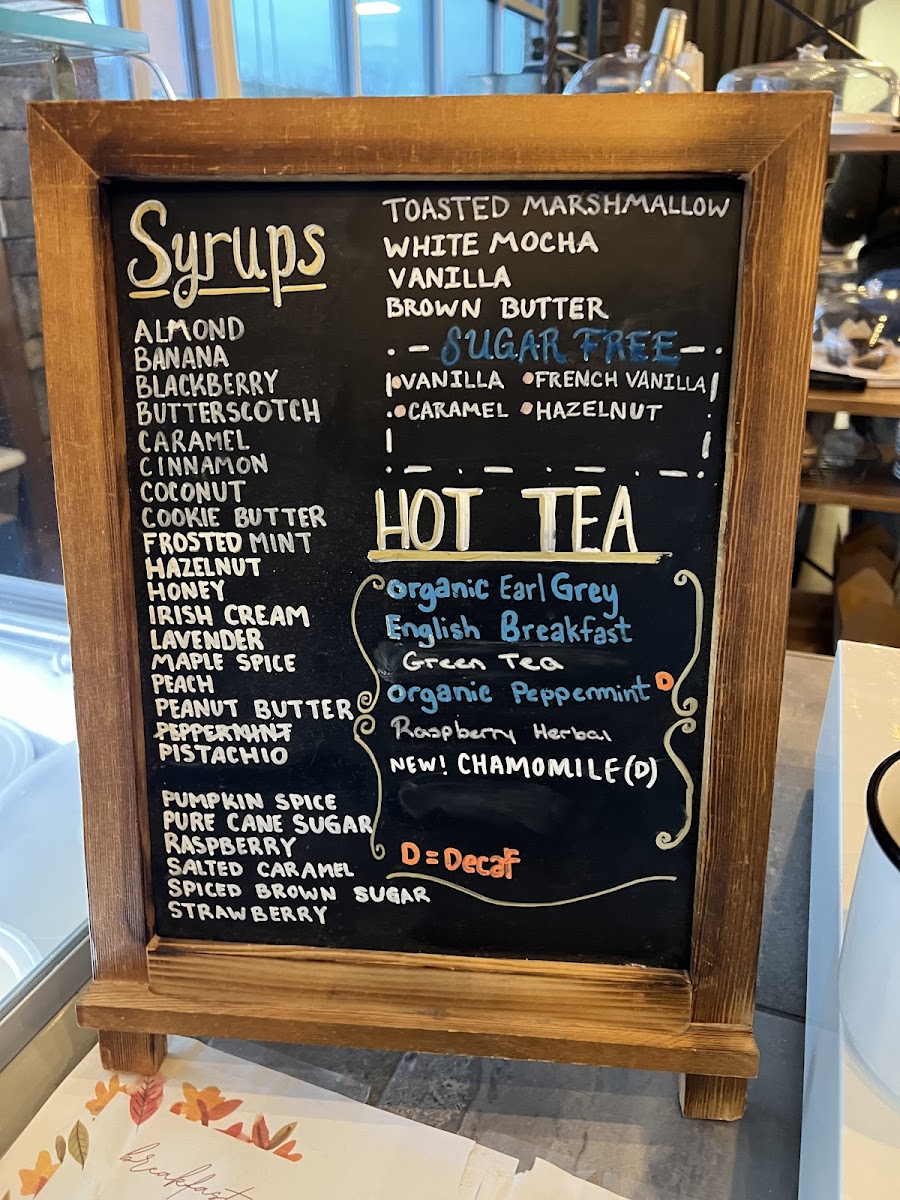 Syrups
ALMOND
BANANA
BLACKBERRY
BUTTERSCOTCH
CARAMEL
CINNAMON
COCONUT
COOKIE BUTTER
FROSTED MINT
HAZELNUT
HONEY
IRISH CREAM
LAVENDER
MAPLE SPICE
PEACH
PEANUT BUTTER
PEPPERMINT
PISTACHIO
PUMPKIN SPICE
PURE CANE SUGAR
RASPBERRY
SALTED CARAMEL
SPICED BROWN SUGAR
STRAWBERRY
TOASTED MARSHMALLOW
WHITE MOCHA
VANILLA
BROWN BUTTER
SUGAR FREE
•VANILLA •FRENCH VANILLA
•CARAMEL •HAZELNUT
HOT TEA
organic Earl Grey
English Breakfast
Green Tea
organic Peppermint D
Raspberry Herbal
NEW! CHAMOMILE (D)
D = Decaf
breakfast